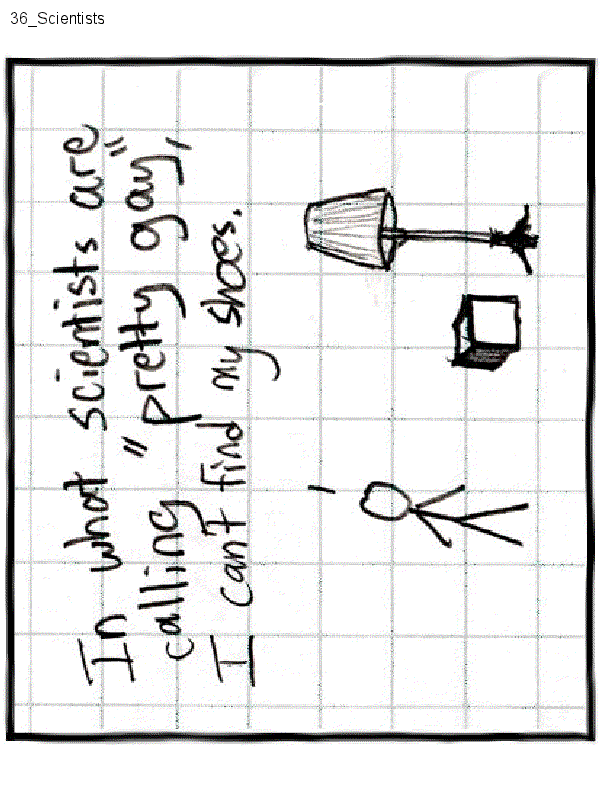 36_Scientists
In what scientists are
calling "pretty gay",
I can't find my shoes.